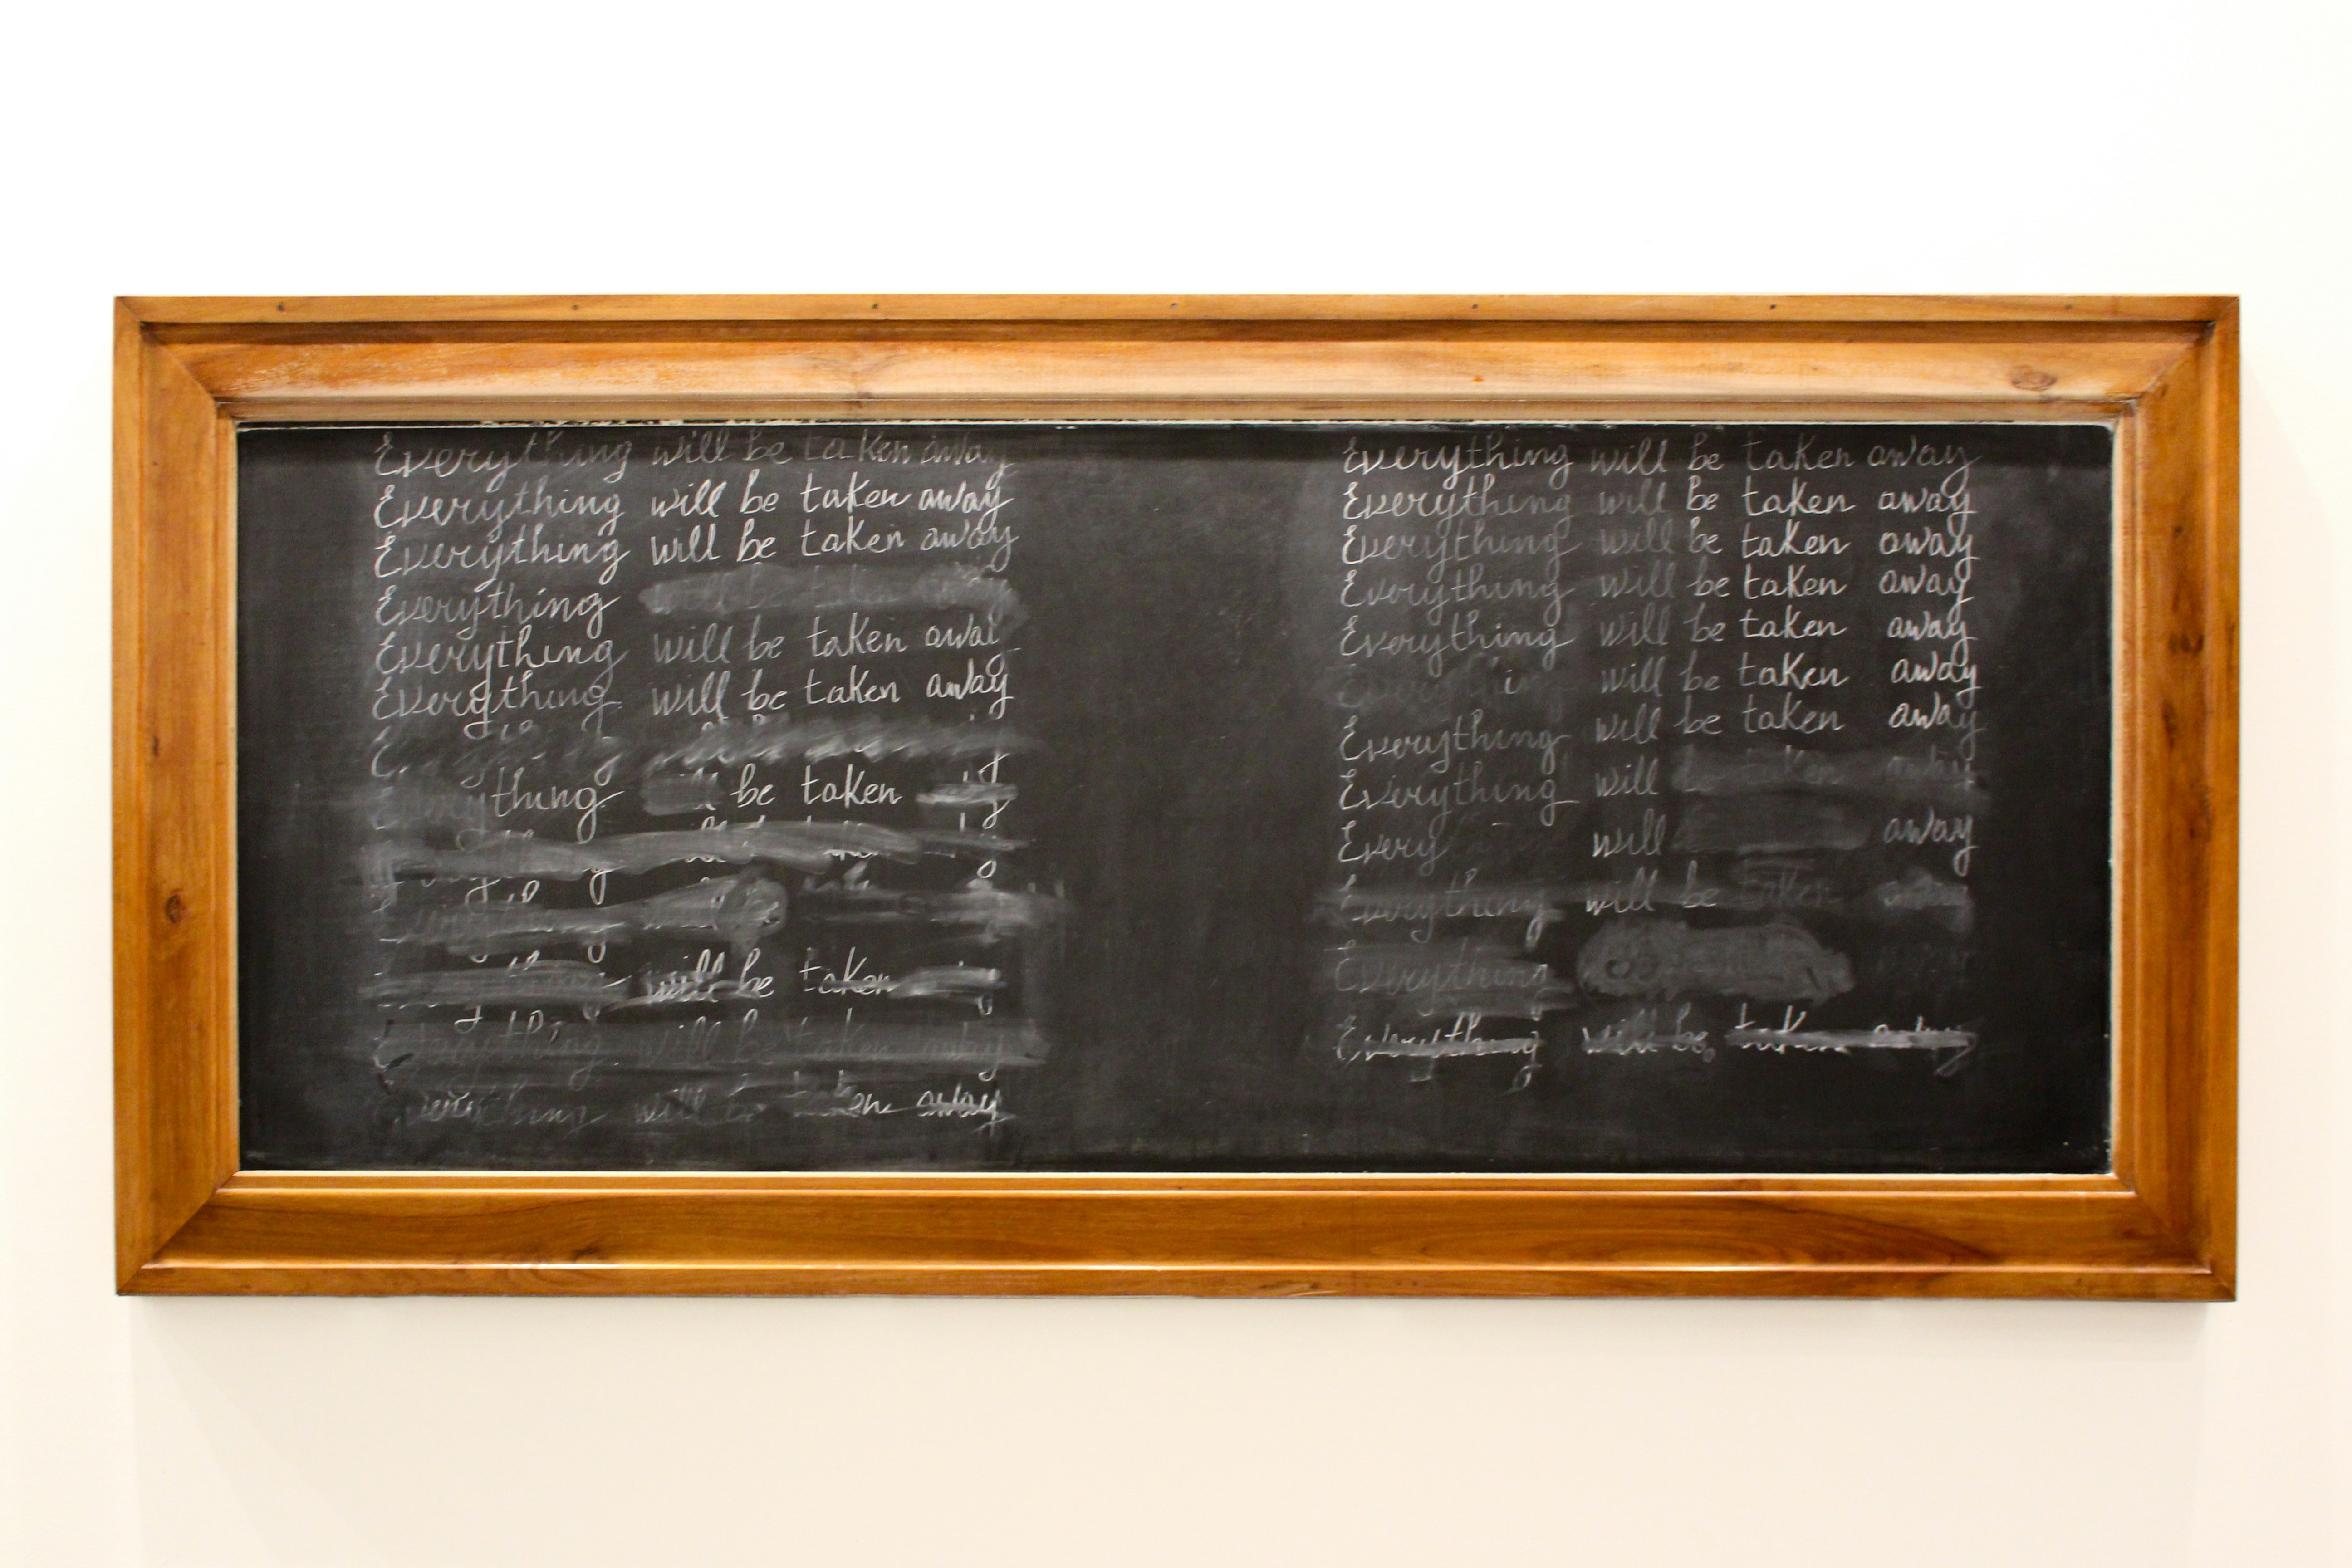 Everything will be taken away
Everything will be taken away
Everything will be taken away
Everything will be taken away
Everything will be taken away
Everything will be taken away
thing be taken
will be taken
Everything will be taken away
Everything will be taken away
Everything will be taken away
Everything will be taken away
Everything will be taken away
Everything will be taken away
Everything will be taken away
will be taken away
Everything will be taken away
Everything will be taken away
Every will away
Everything will be taken
Everything
Everything will be taken away